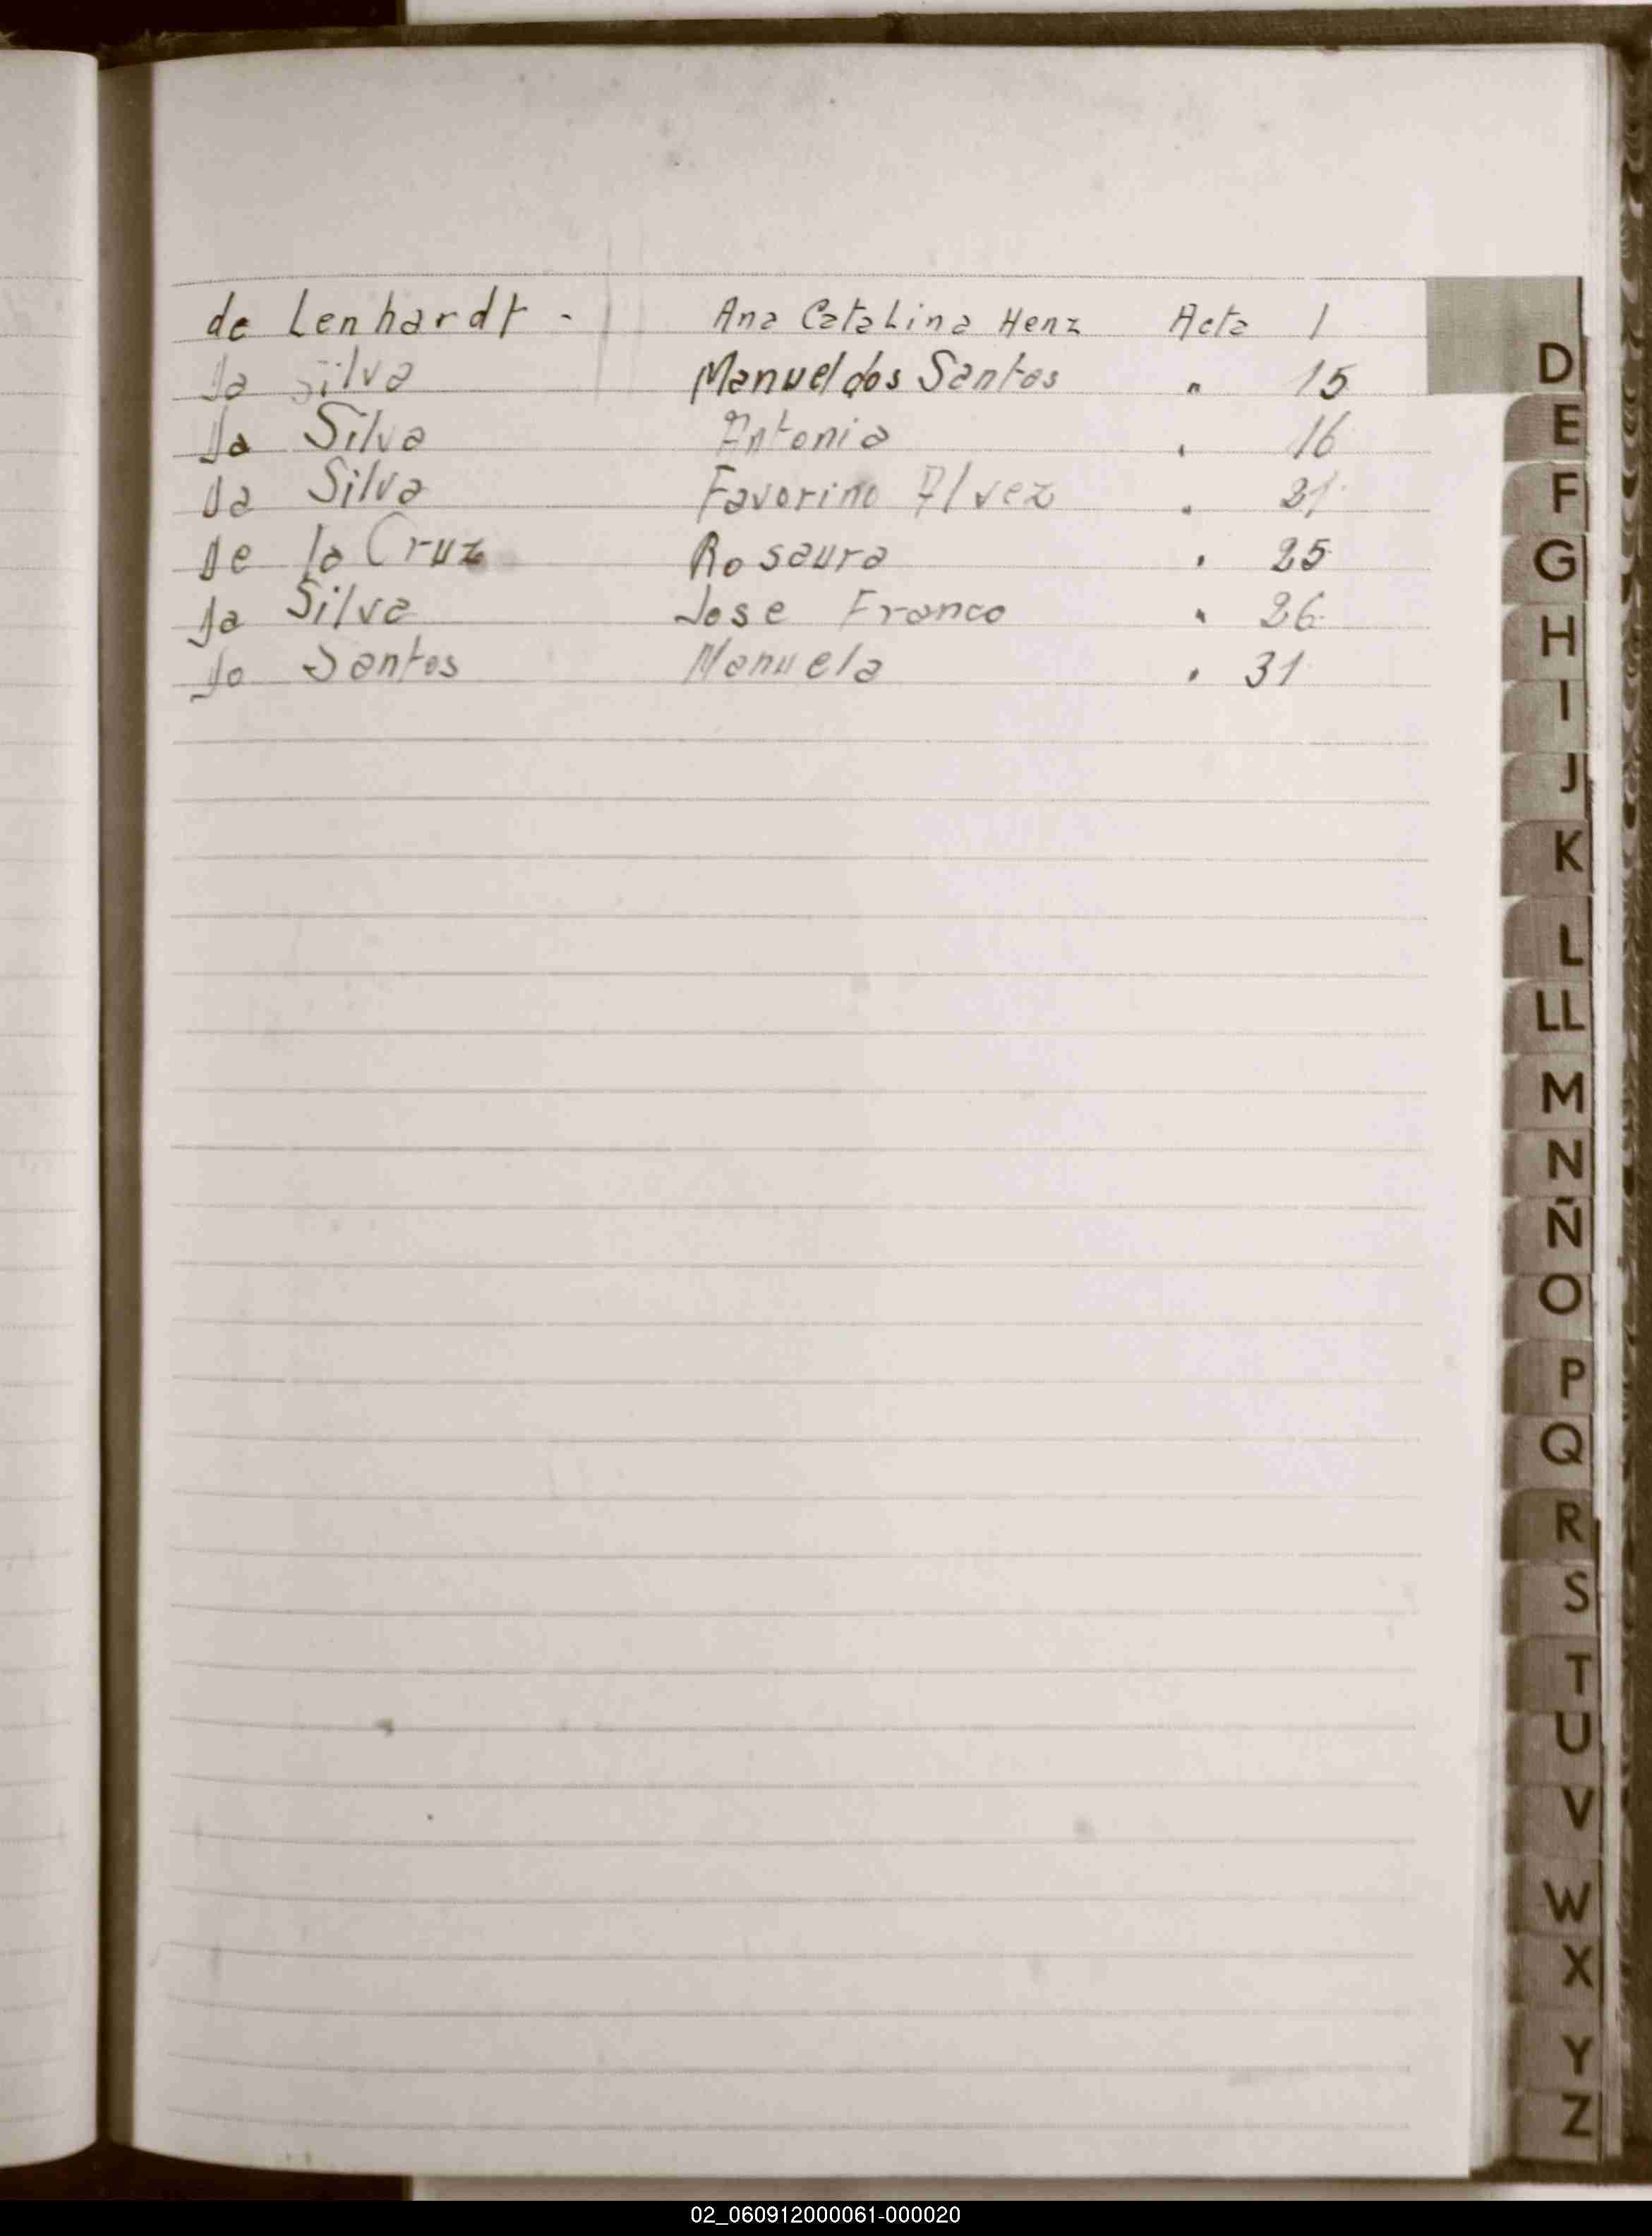 de Lenhardt - Ana Catalina Henz Acta 1
da Silva Manuel dos Santos " 15
Da Silva Antonia " 16
Da Silva Favorino Alvez " 21
De la Cruz Rosaura " 25
Da Silva Jose Franco " 26
Do Santos Manuela " 31
D
E
F
G
H
I
J
K
L
LL
M
N
Ñ
O
P
Q
R
S
T
U
V
W
X
Y
Z
02_060912000061-000020